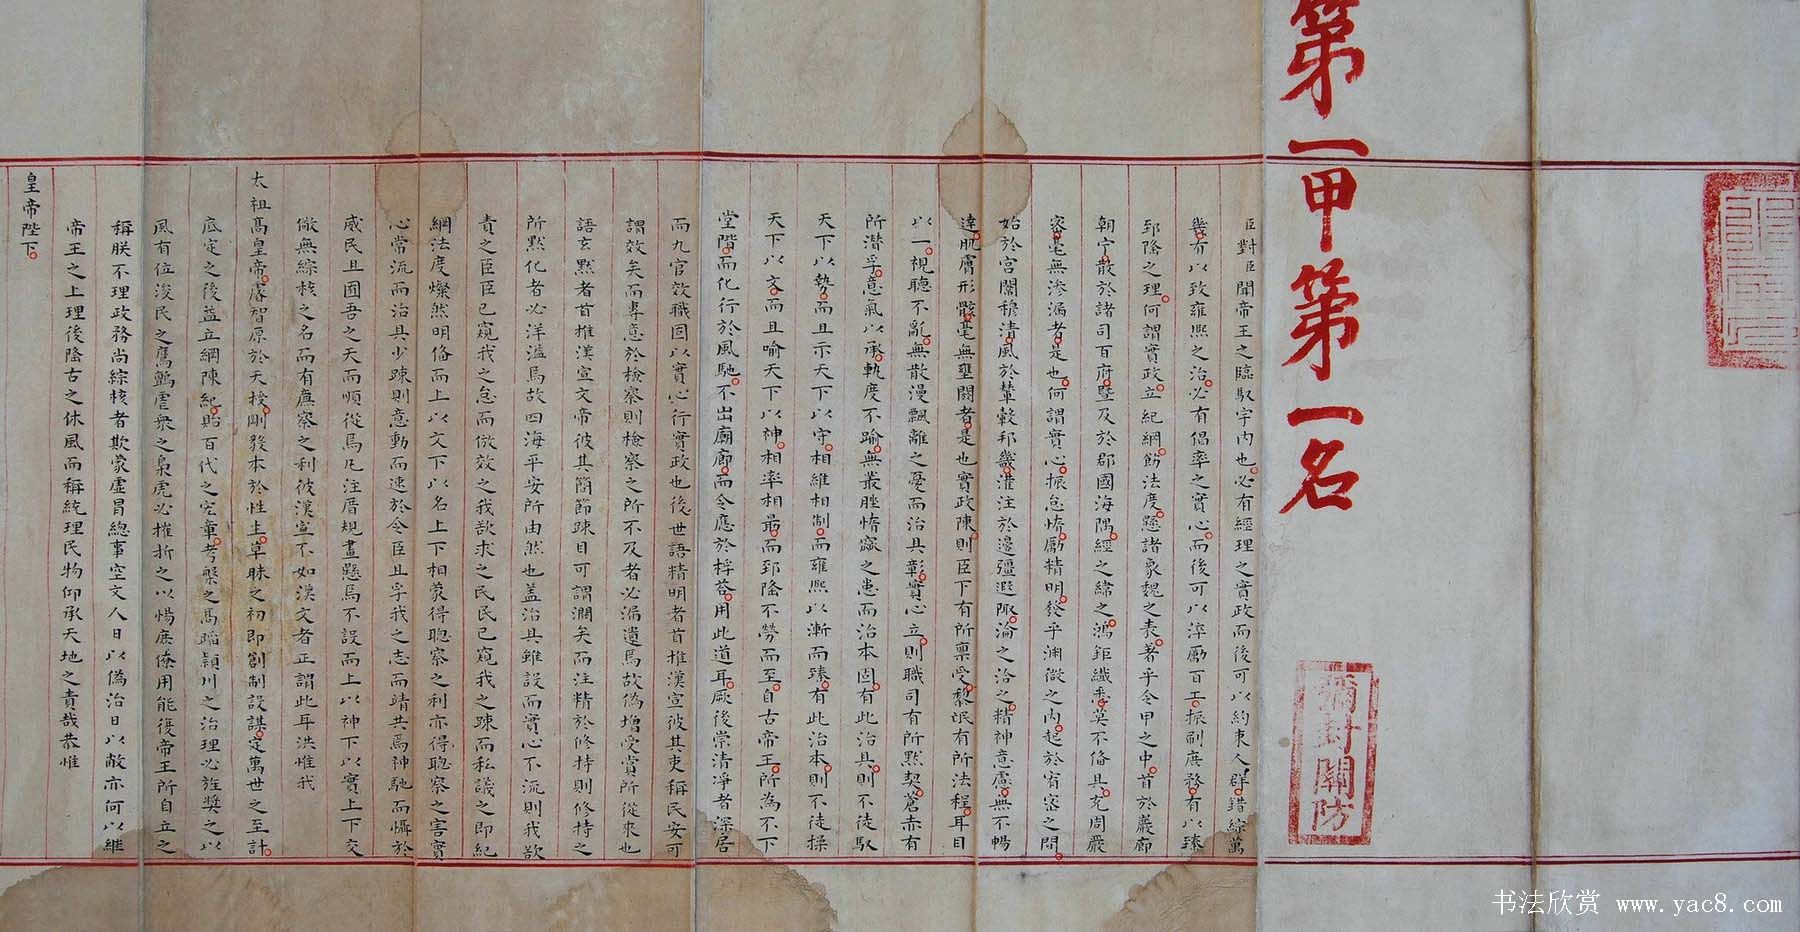 第一甲第一名
彌封關防
臣對臣聞帝王之臨馭宇內也必有經理之實政而後可以約束人群錯綜萬
幾有以致雍熙之治必有倡率之實心而後可以淬勵百工振刷庶務有以臻
郅隆之理何謂實政立紀綱飭法度懸諸象魏之表著乎令甲之中首於巖廊
朝宁散於諸司百府暨及於郡國海隅經之緯之鴻鉅纖悉莫不備具充周嚴
密毫無滲漏者是也何謂實心振怠惰勵精明發乎淵微之內起於宥密之間
始於宮闈穆清風於輦轂邦畿灌注於邊疆遐陬淪之洽之精神意慮無不暢
達肌膚形骸毫無壅閼者是也實政陳則臣下有所稟受黎氓有所法程耳目
以一視聽不亂無散漫飄離之憂而治具彰實心立則職司有所默契蒼赤有
所潛孚意氣以承軌度不踰無叢脞惰窳之患而治本固有此治具則不徒馭
天下以勢而且示天下以守相維相制而雍熙以漸而臻有此治本則不徒操
天下以文而且喻天下以神相率相最而郅隆不勞而至自古帝王所為不下
堂階而化行於風馳不出廟廊而令應於桴答用此道耳厥後崇清凈者深居
而九官效職固以實心行實政也後世語精明者首推漢宣彼其吏稱民安可
謂效矣而專意於檢察則檢察之所不及者必漏遺焉故偽增受賞所從來也
語玄默者首推漢宣文帝彼其簡節疎目可謂濶矣而注精於修持則修持之
所默化者必洋溢焉故四海平安所由然也蓋治具雖設而實心不流則我欲
責之臣臣已窺我之怠而倣效之我欲求之民民已窺我之疎而私議之即紀
綱法度燦然明備而上以文下以名上下相蒙得聰察之利亦得聰察之害實
心常流而治具少疎則意動而速於令臣且孚我之志而靖共焉神馳而懾於
威民且囿吾之天而順從焉凡注厝規畫懸焉不設而上以神下以實上下交
儆無綜核之名而有廉察之利彼漢宣不如漢文者正謂此耳洪惟我
太祖高皇帝睿智原於天授剛發本於性生草昧之初即創制設謀定萬世之至計
底定之後益立綱陳紀貽百代之憲章考槃之高蹈潁川之治理必旌獎之以
風有位浚民之鷹鸇虐衆之梟虎必摧折之以惕庶僚用能復帝王所自立之
稱朕不理政務尚綜核者欺蒙虛冒總事空文人日以偽治日以敝亦何以維
帝王之上理後隆古之休風而稱統理民物仰承天地之責哉恭惟
皇帝陛下
书法欣赏 www.yac8.com